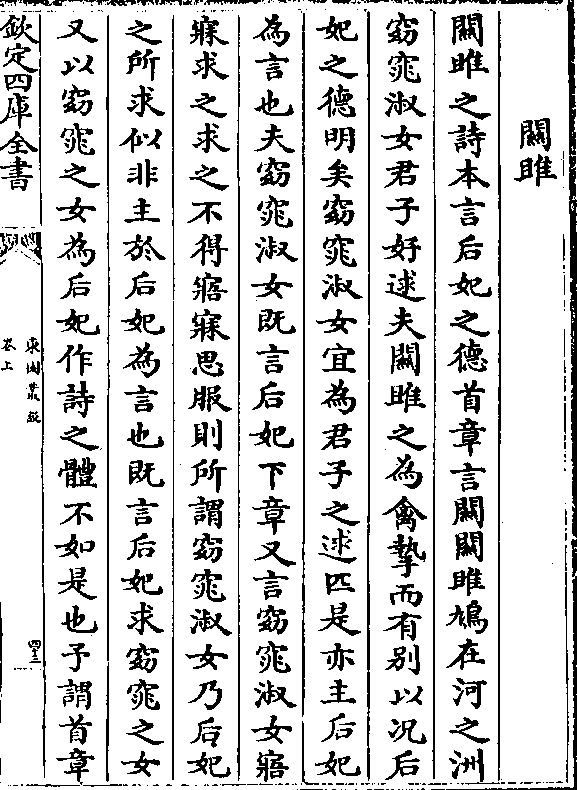 關雎
關雎之詩本言后妃之德首章言關關雎鳩在河之洲
窈窕淑女君子好逑夫關雎之為禽摯而有别以況后
妃之德明矣窈窕淑女宜為君子之逑匹是亦主后妃
為言也夫窈窕淑女既言后妃下章又言窈窕淑女寤
寐求之求之不得寤寐思服則所謂窈窕淑女乃后妃
之所求似非主於后妃為言也既言后妃求窈窕之女
又以窈窕之女為后妃作詩之體不如是也予謂首章
欽定四庫全書
卷上
四三